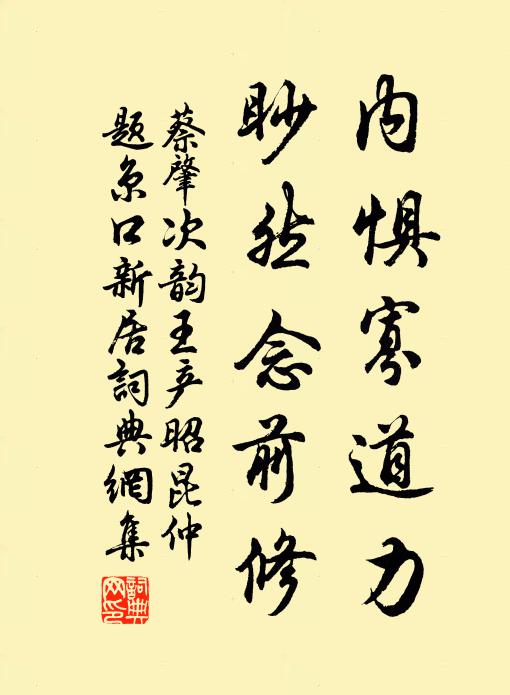 内惧寡道力
眇然念前修
蔡肇次韵王彦昭昆仲
题京口新居詞典網集
詞典网印